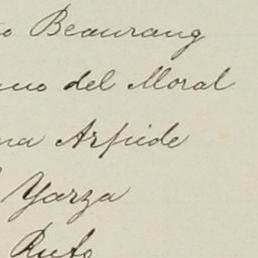 o Beaurang
no del Moral
na Arpide
Yarza
Rufo